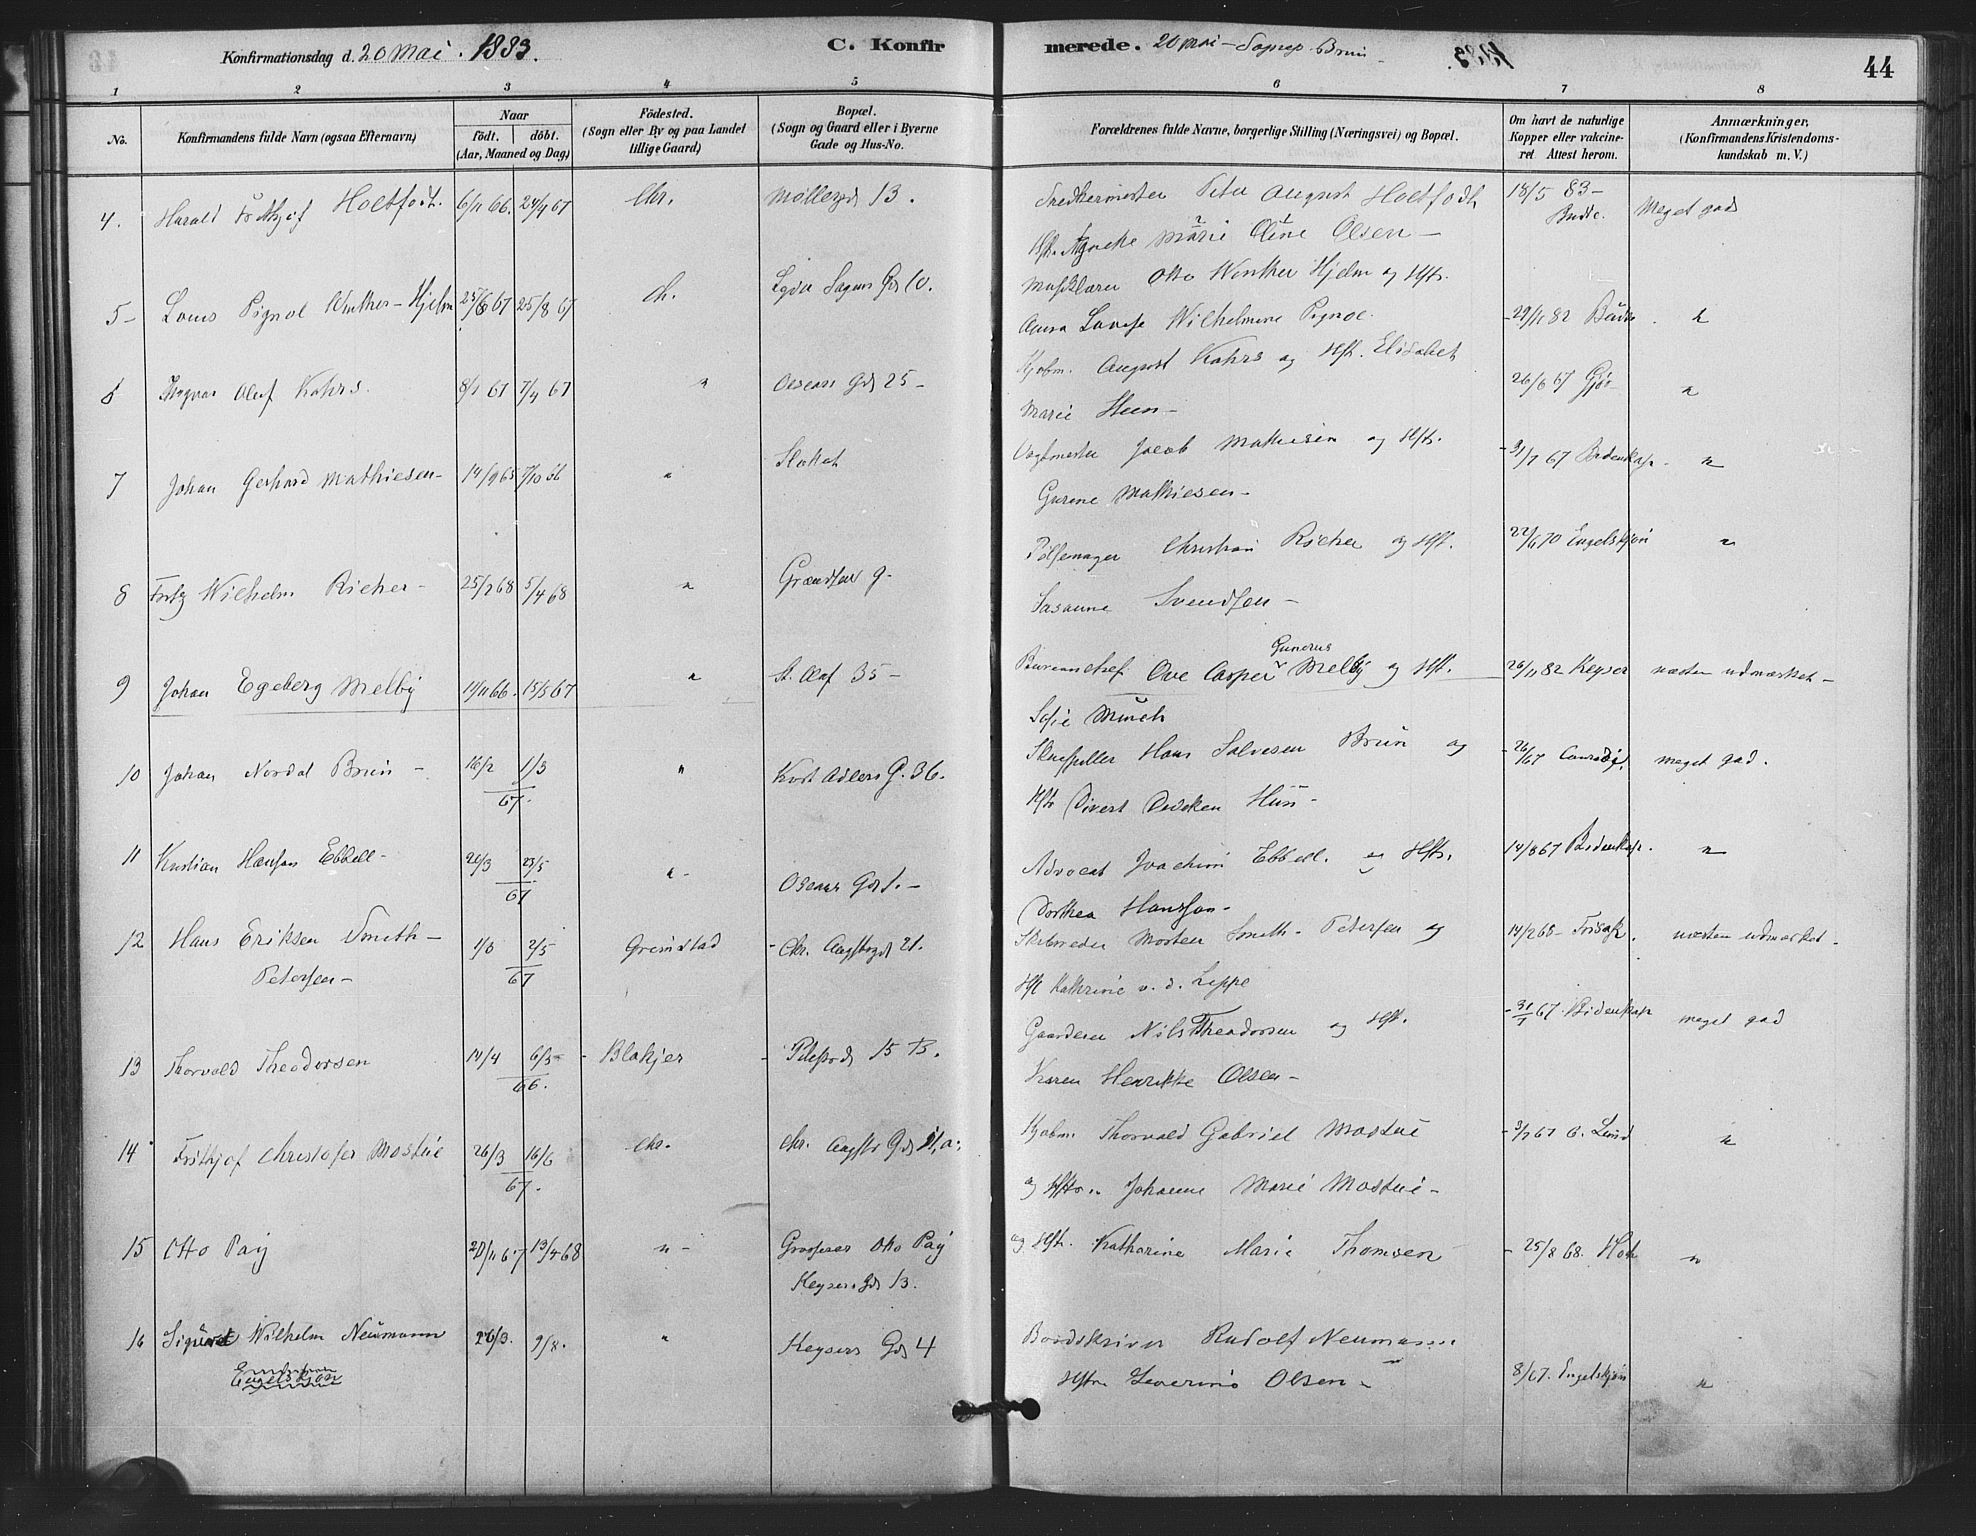 Konfirmationsdag d. 20 Mai. 1883.
C. Konfirmerede. 20 mai - Brun
44
1 2 3 4 5 6 7 8
No.
Konfirmandens fulde Navn (ogsaa Efternavn)
Naar
födt. döbt.
(Aar, Maaned og Dag)
Födested.
(Sogn eller By og paa Landet
tillige Gaard)
Bopæl.
(Sogn og Gaard eller i Byerne
Gade og Hus-No.
Forældrenes fulde Navne, borgerlige Stilling (Næringsvei) og Bopæl.
Om havt de naturlige
Kopper eller vakcine-
ret Attest herom.
Anmærkninger,
(Konfirmandens Kristendoms-
kundskab m. V.)
4. Harald Fritkjof Holtfodt. 6/11 66. 24/4 67 Chr. Møllergd 13. Snedkermester Peter August Holtfodt 18/5 83- Meget god
Hst. Agneke Marie Oline Olsen -
5- Louis Pignol Winther-Hjelm 25/6 67 25/8 67 Ch. 10. Otto Winther Hjelm og Hst. 29/11 82 "
Anna Lovise Wilhelmine Pignol.
6 Olaf Kahrs. 8/1 67 7/4 67 " Oscars Gd 25- Kjøbm. August Kahrs og Hst. Elisabet 26/6 67 "
Marie Steen -
7 Johan Gerhard Mathiesen- 14/9 65 7/10 66 " Slottet Vagtmester Jacob Mathisen og Hst. 31/7 67 Bidenkap- "
Gurine Mathiesen-
8 Fritz Wilhelm Richer- 25/2 68 5/4 68 " Grændsen 9. Pølsemager Christian Richer og Hst. 22/6 70 Engelskjøn "
Susanne Svendsen -
9 Johan Egeberg Melby 14/11 66. 15/5 67 " St. Olaf 35- Bureauchef Ove Casper Gunerus Melby og Hst. 26/11 82 Keyser næsten udmærket -
Sofie Munch
10 Johan Nordal Brun - 16/2 1/3 67. " Kort Adlers G. 36. Skuespiller Hans Salvesen Brun og 26/67 meget god.
Hst
11 Kristian Hansen Ebbell- 20/3 23/5 67 "- Oscars Gd 1.- Advocat Joachim Ebbell. og Hst. 14/8 67 Bidenkap. "
Dorthea Hansson-
12 Hans Eriksen Smith- 1/3 2/5 67 Grimstad - Chr. Augstsgd 21. Skibsreder Morten Smith- Petersen og 14/2 68- Frisak. næsten udmærket-
Petersen-
Hst Kathrine v. d. Lippe
13 Thorvald Theodorsen 14/4 6/5 66. - Blakjer - Pilestrd 15 B. Gaardeier Nils Theodorsen og Hst. - 31/7 67. Bidenkap meget god
Karen Henrikke Olsen-
14 Fritkjof Christofer Mostue 26/3 16/6 67. Chr. Chr. Augsts Gd 21,a. Kjøbm. Thorvald Gabriel Mostue - 3/7 67 C. Lund "
og Hst. Johanne Marie Mostue-
15 Otto Pay 21/11 67 13/4 68 "- Grosserer Otto Pay og Hst. Katharine Marie Thomsen - 25/8 68. "
Keysers Gd 13.
16 Sigurd Wilhelm Neumann 26/3. 9/8. " Keysers Gd 4 Rudolf Neumann
Engelskjøn
Hst. Severine Olsen- 8/67. Engelskjøn "